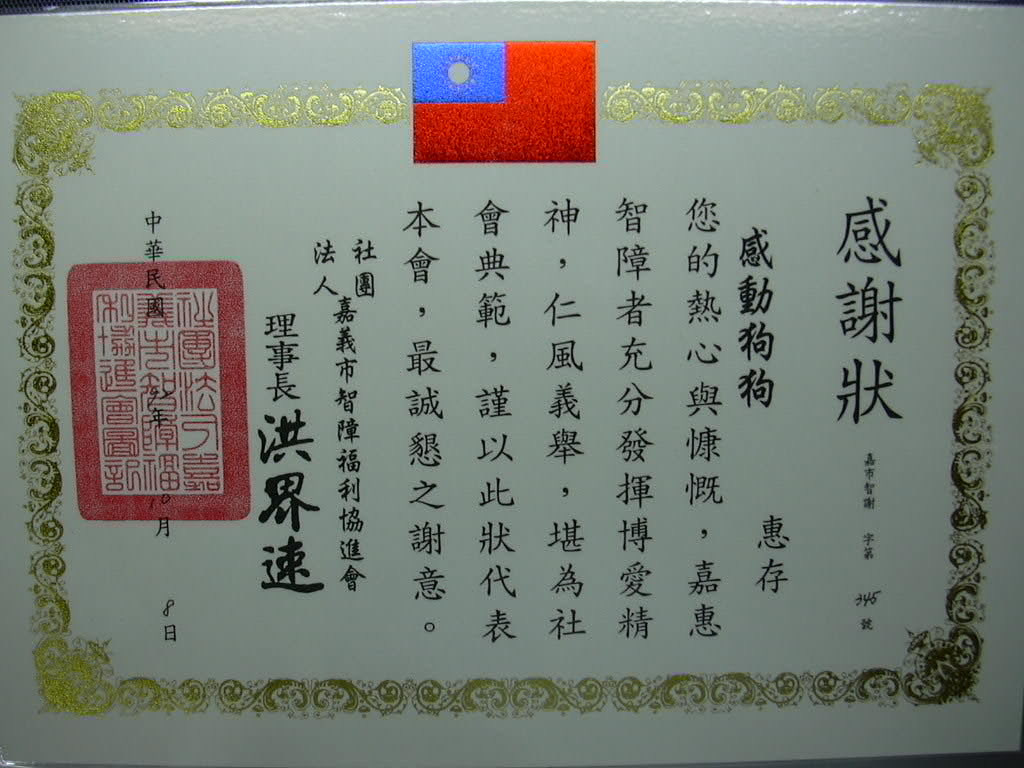 感謝狀
嘉市智謝 字第 345 號
感動狗狗 惠存
您的熱心與慷慨，嘉惠
智障者充分發揮博愛精
神，仁風義舉，堪為社
會典範，謹以此狀代表
本會，最誠懇之謝意。
社團法人嘉義市智障福利協進會
理事長 洪界速
中華民國 年 10 月 8 日
社團法人嘉
義市智障福
利協進會圖記